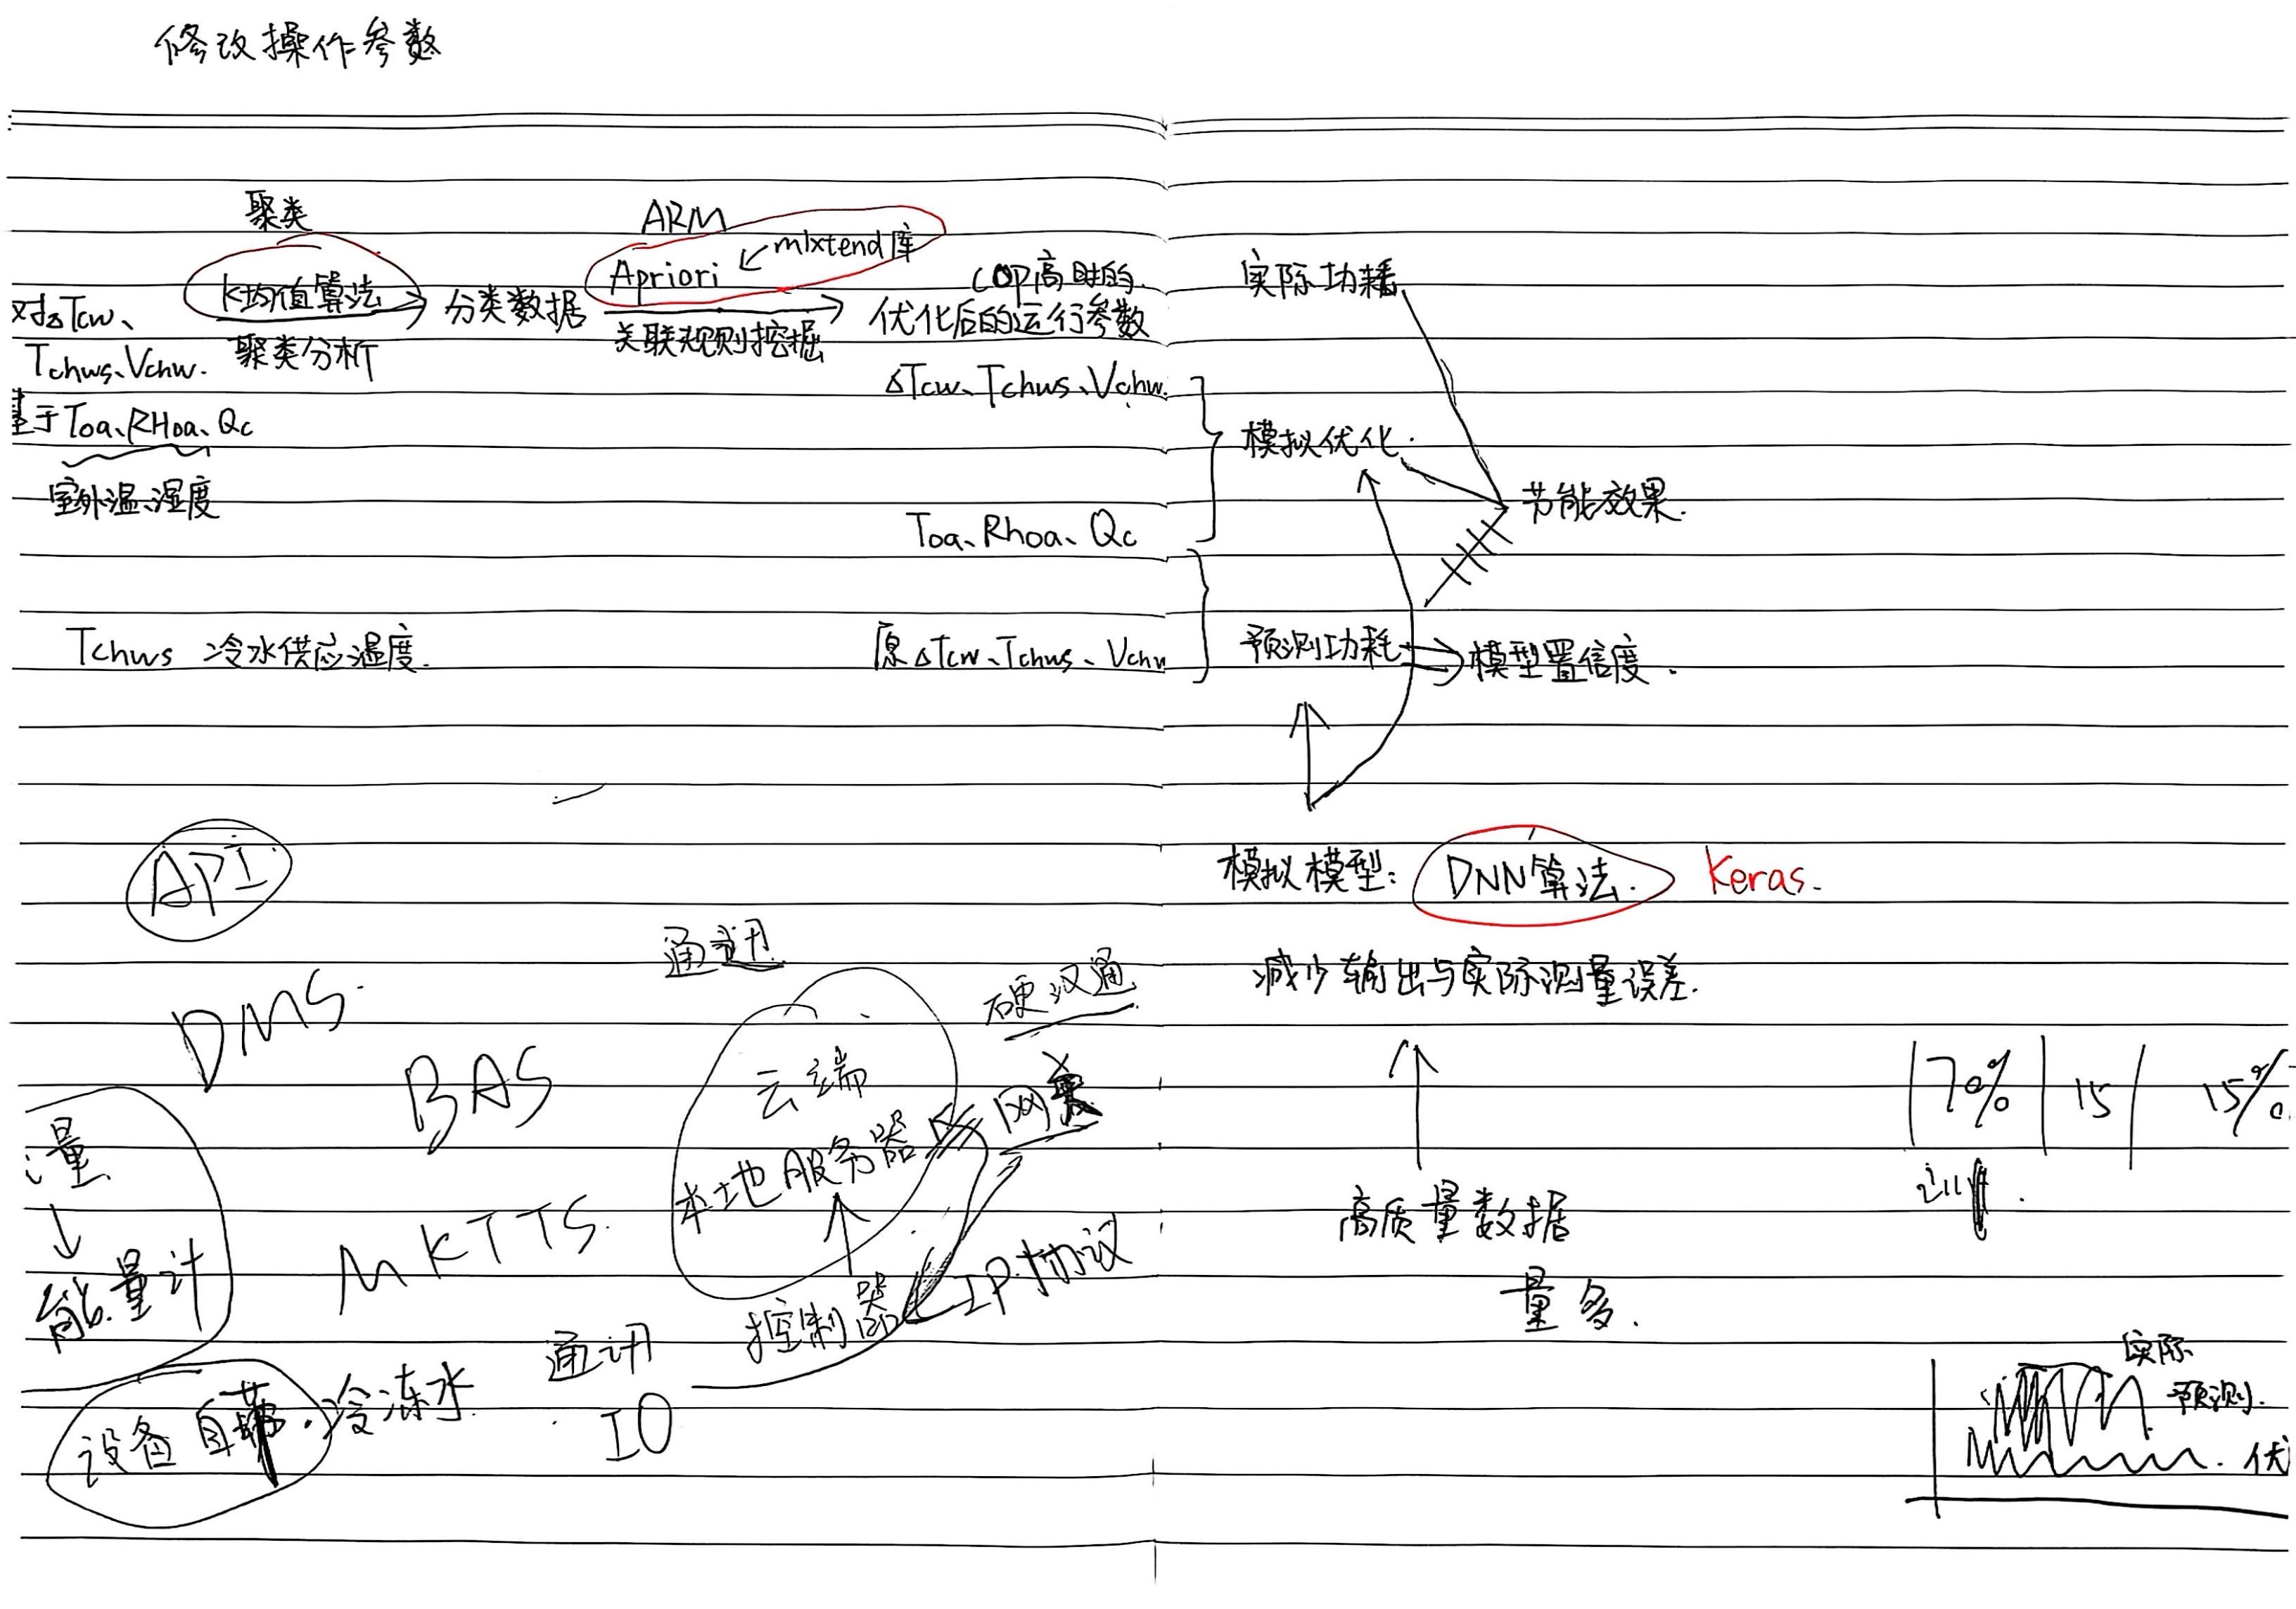 修改操作参数
聚类
K均值算法
对ΔTcw、
聚类分析
Tchws、Vchw.
基于Toa、RHoa、Qc
室外温、湿度
分类数据
ARM
Apriori
mlxtend库
关联规则挖掘
COP高时的
优化后的运行参数
ΔTcw、Tchws、Vchw.
Toa、Rhoa、Qc
Tchws 冷水供应温度.
原ΔTcw、Tchws、Vchw
实际功耗
模拟优化.
节能效果.
预测功耗
模型置信度.
模拟模型:
DNN算法.
Keras.
减少输出与实际测量误差.
高质量数据
量多.
70% 15 15%
实际
预测.
优
API
DMS.
BAS
MKTTS.
通讯
云端
本地服务器
硬汉通
控制器
IP.协议
量
能量计
设备自带.冷冻水
通讯
IO